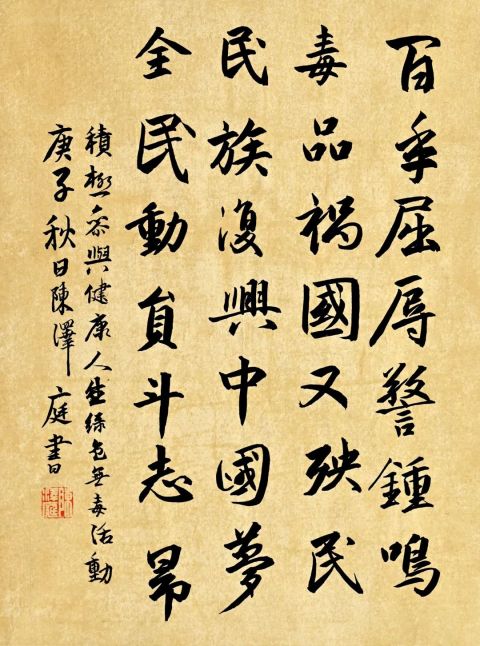 百年屈辱警鍾鳴
毒品禍國又殃民
民族復興中國夢
全民動員斗志昂
積極參與健康人生綠色無毒活動
庚子秋日陳澤庭書